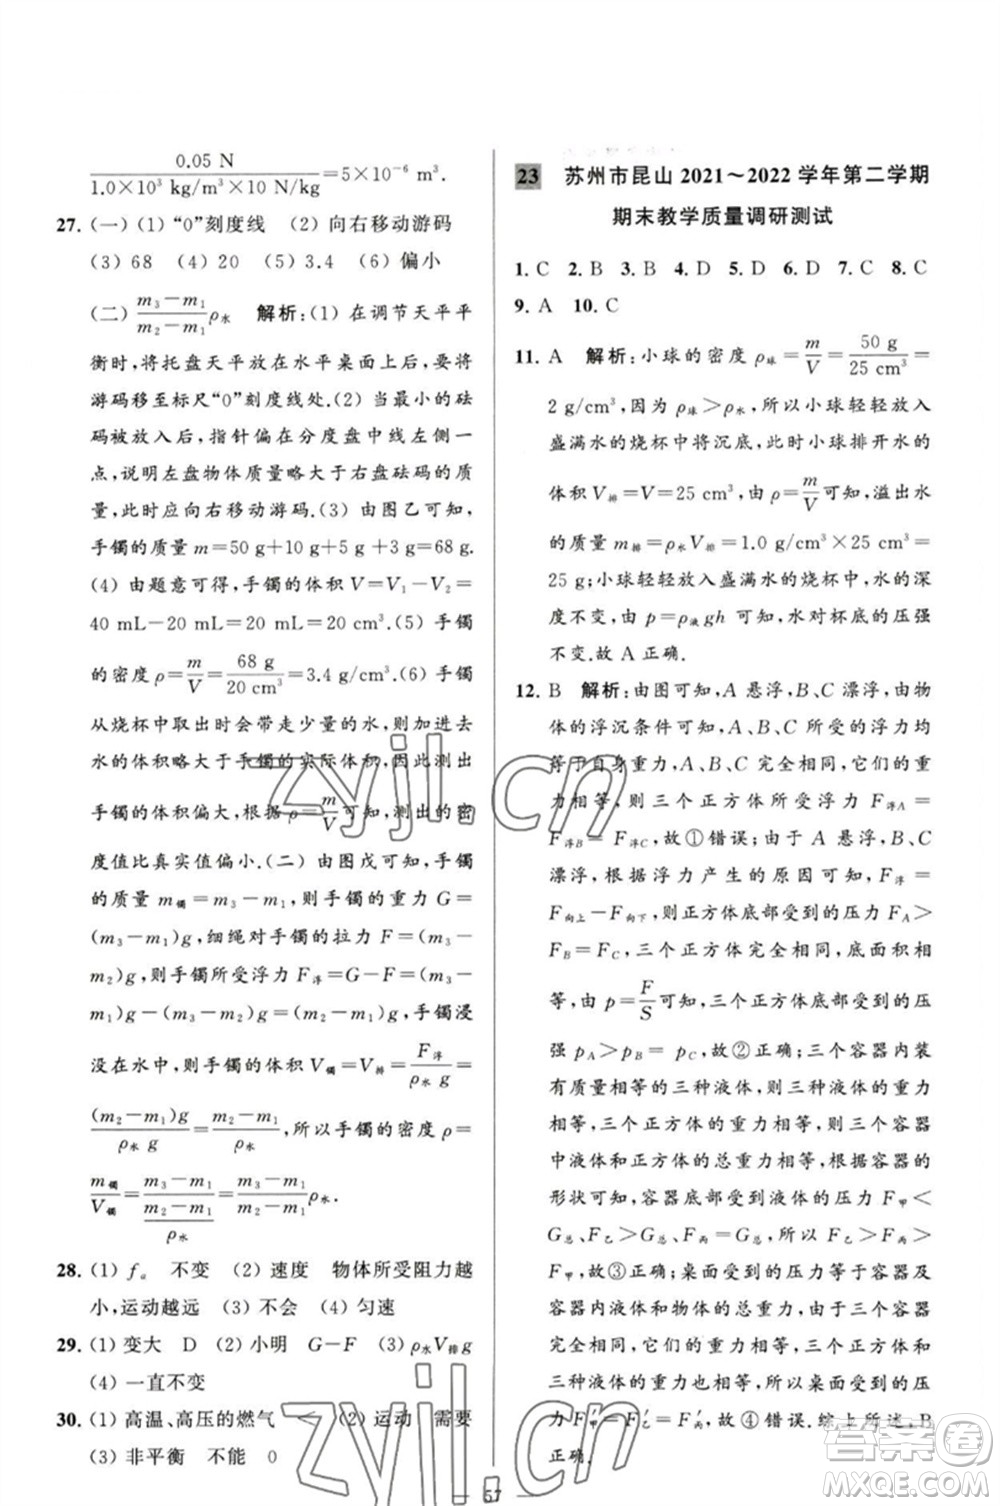 0.05 N
1.0×10³ kg/m³×10 N/kg =5×10⁻⁶ m³.
27. (一) (1) “0”刻度线 (2) 向右移动游码
(3) 68 (4) 20 (5) 3.4 (6) 偏小
(二) (m₃−m₁)/(m₂−m₁)ρ水 解析:(1) 在调节天平平
衡时,将托盘天平放在水平桌面上后,要将
游码移至标尺“0”刻度线处.(2) 当最小的砝
码被放入后,指针偏在分度盘中线左侧一
点,说明左盘物体质量略大于右盘砝码的质
量,此时应向右移动游码.(3) 由图乙可知,
手镯的质量 m=50 g+10 g+5 g+3 g=68 g.
(4) 由题意可得,手镯的体积 V=V₁−V₂=
40 mL−20 mL=20 mL=20 cm³.(5) 手镯
的密度 ρ=m/V=68 g/20 cm³=3.4 g/cm³.(6) 手镯
从烧杯中取出时会带走少量的水,则加进去
水的体积略大于手镯的实际体积,因此测出
手镯的体积偏大,根据 ρ=m/V可知,测出的密
度值比真实值偏小.(二) 由图戊可知,手镯
的质量 m镯=m₃−m₁,则手镯的重力 G=
(m₃−m₁)g,细绳对手镯的拉力 F=(m₃−
m₂)g,则手镯所受浮力 F浮=G−F=(m₃−
m₁)g−(m₃−m₂)g=(m₂−m₁)g,手镯浸
没在水中,则手镯的体积 V镯=V排=F浮/(ρ水 g)=
(m₂−m₁)g/(ρ水 g)=(m₂−m₁)/ρ水,所以手镯的密度 ρ=
m镯/V镯=(m₃−m₁)/((m₂−m₁)/ρ水)=(m₃−m₁)/(m₂−m₁)ρ水.
28. (1) fₐ 不变 (2) 速度 物体所受阻力越
小,运动越远 (3) 不会 (4) 匀速
29. (1) 变大 D (2) 小明 G−F (3) ρ水V排g
(4) 一直不变
30. (1) 高温、高压的燃气 < (2) 运动 需要
(3) 非平衡 不能 0
23 苏州市昆山 2021～2022 学年第二学期
期末教学质量调研测试
1. C 2. B 3. B 4. D 5. D 6. D 7. C 8. C
9. A 10. C
11. A 解析:小球的密度 ρ球=m/V=50 g/25 cm³=
2 g/cm³,因为 ρ球>ρ水,所以小球轻轻放入
盛满水的烧杯中将沉底,此时小球排开水的
体积 V排=V=25 cm³,由 ρ=m/V可知,溢出水
的质量 m排=ρ水V排=1.0 g/cm³×25 cm³=
25 g;小球轻轻放入盛满水的烧杯中,水的深
度不变,由 p=ρ液gh 可知,水对杯底的压强
不变.故 A 正确.
12. B 解析:由图可知,A 悬浮,B、C 漂浮,由物
体的浮沉条件可知,A、B、C 所受的浮力均
等于自身重力,A、B、C 完全相同,它们的重
力相等,则三个正方体所受浮力 F浮A=
F浮B=F浮C,故①错误;由于 A 悬浮,B、C
漂浮,根据浮力产生的原因可知,F浮=
F向上−F向下,则正方体底部受到的压力 FA>
FB=FC,三个正方体完全相同,底面积相
等,由 p=F/S可知,三个正方体底部受到的压
强 pA>pB=pC,故②正确;三个容器内装
有质量相等的三种液体,则三种液体的重力
相等,三个正方体的重力相等,则三个容器
中液体和正方体的总重力相等,由容器的
形状可知,容器底部受到液体的压力 F甲<
G总、F乙>G总、F丙=G总,所以 F乙>F丙>
F甲,故③正确;桌面受到的压力等于容器、
容器内液体和物体的总重力,由于三种容
器的重力相等,三个正方体的重力相等,
三种液体的重力相等,所以桌面受到的压
力 F′甲=F′乙=F′丙,故④错误.综上所述,B
正确.
57
zyjl.cn
zyjl.cn
答案圈
MXQE.COM